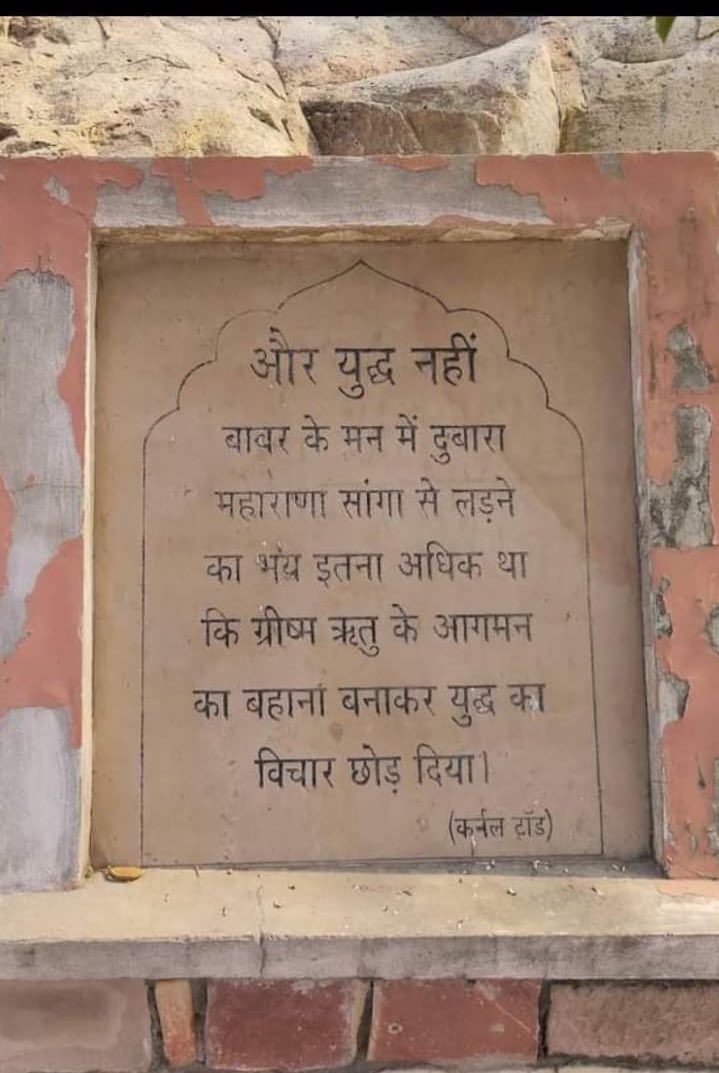 और युद्ध नहीं
बाबर के मन में दुबारा
महाराणा सांगा से लड़ने
का भय इतना अधिक था
कि ग्रीष्म ऋतु के आगमन
का बहाना बनाकर युद्ध का
विचार छोड़ दिया।
(कर्नल टॉड)